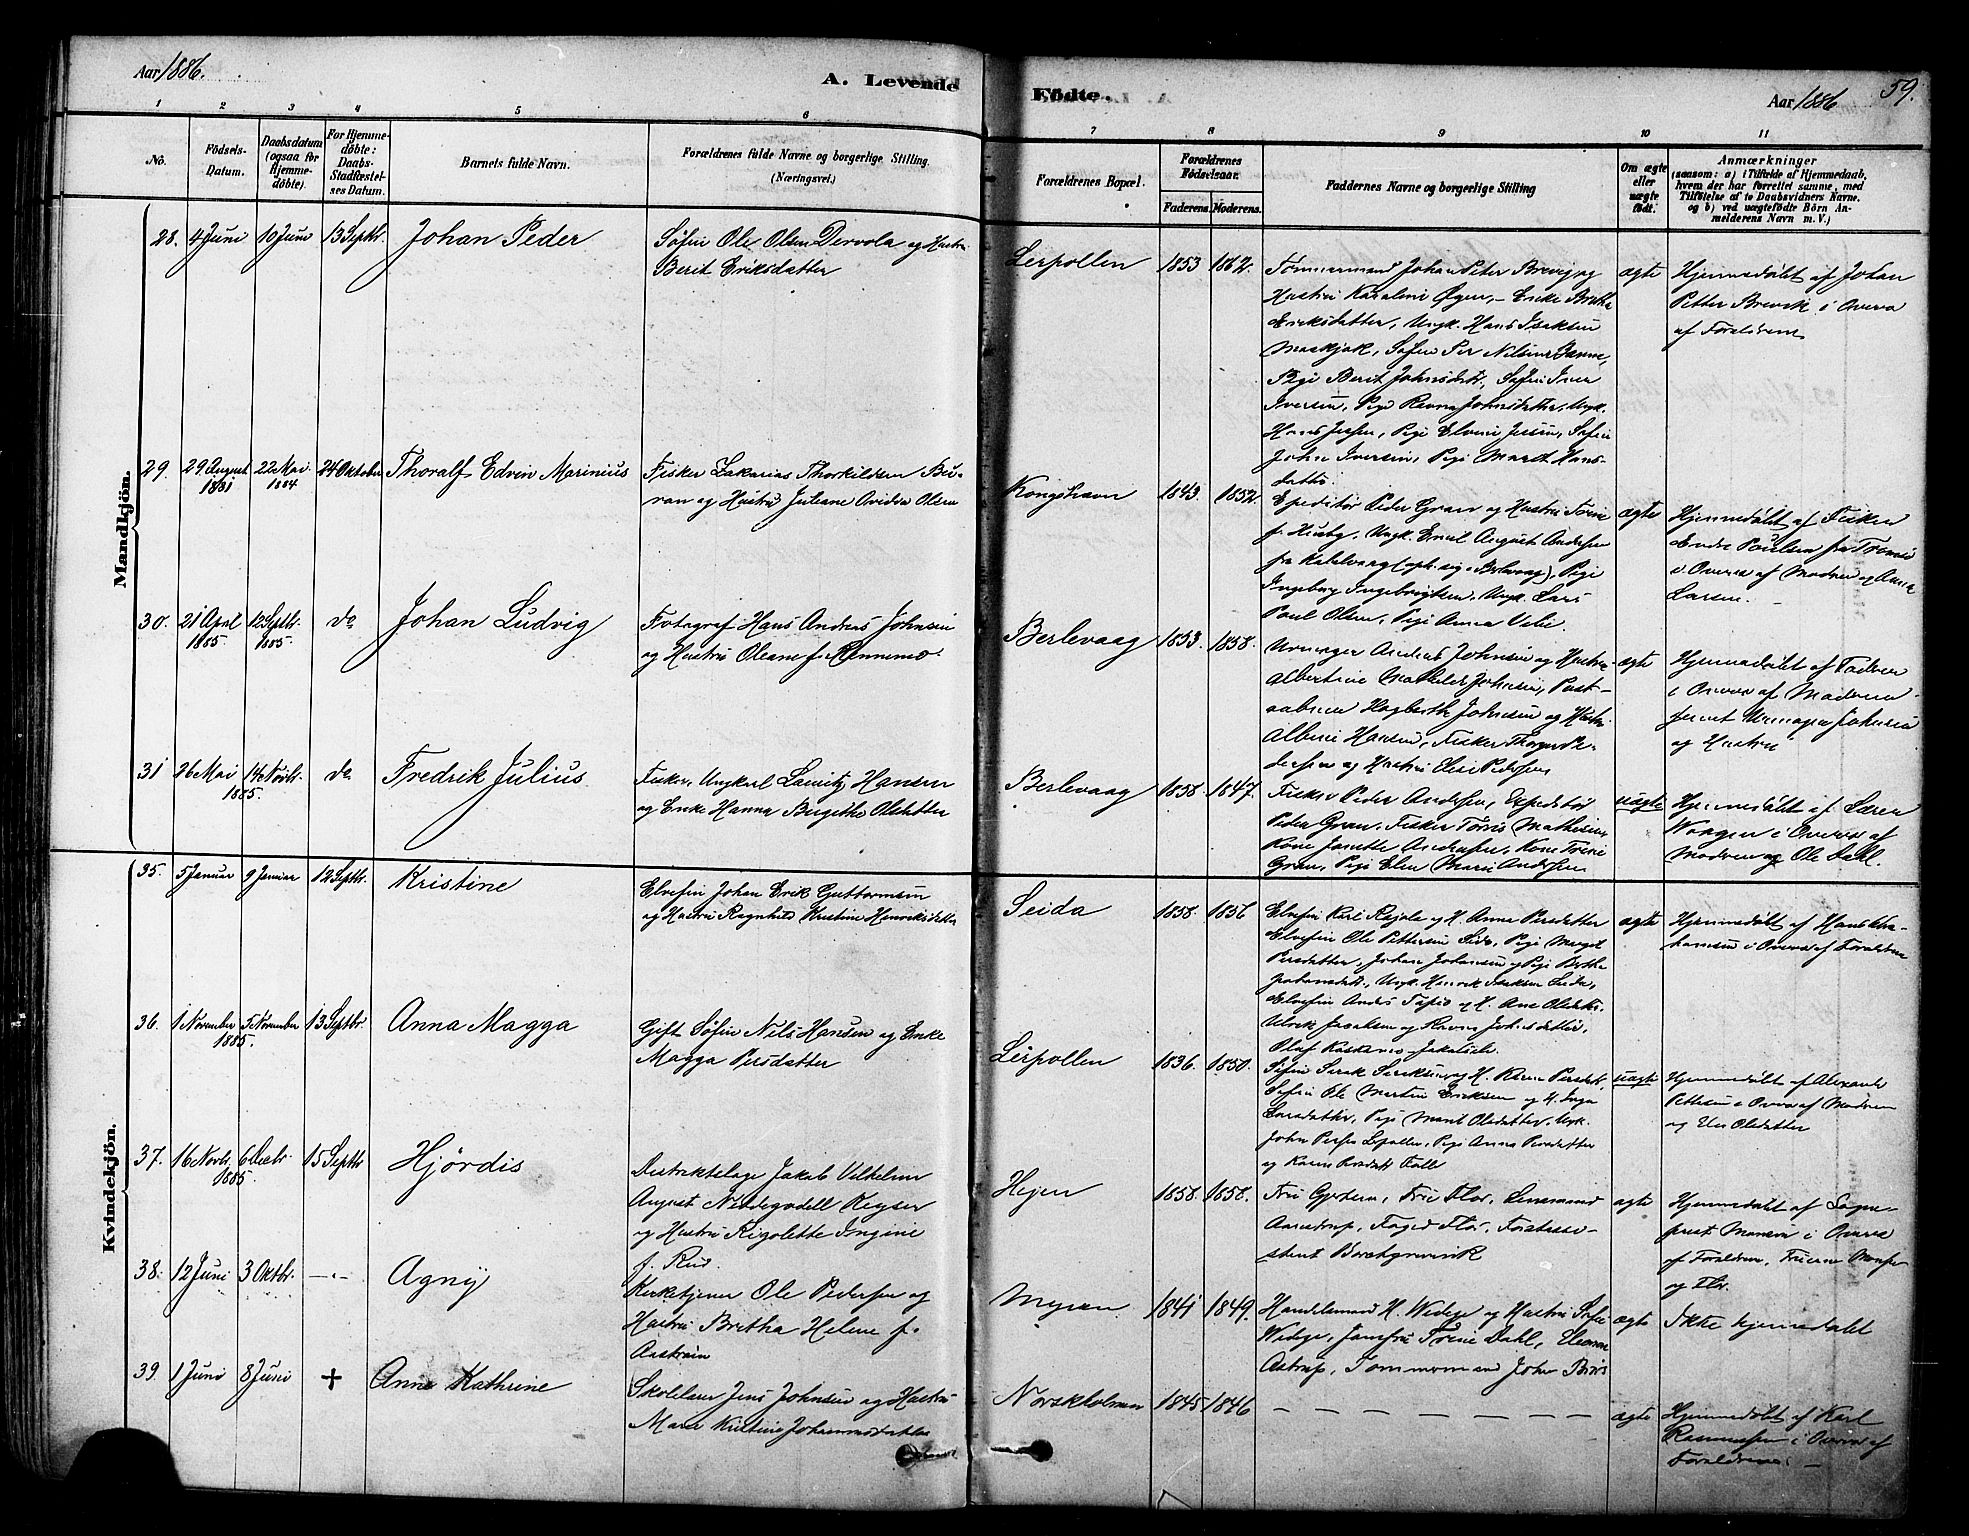 Aar 1886.
A. Levende
Födte.
Aar 1886
59.
1 2 3 4 5 6
7 8 9 10 11
No.
Födsels-
Datum.
Daabsdatum
(ogsaa for
Hjemme-
döbte).
For Hjemme-
döbte:
Daabs-
Stadfæstel-
ses Datum.
Barnets fulde Navn.
Forældrenes fulde Navne og borgerlige Stilling.
(Næringsvei.)
Forældrenes Bopæl.
Forældrenes
Födselsaar.
Faderens. Moderens.
Faddernes Navne og borgerlige Stilling
Om ægte
eller
uægte
født.
Anmærkninger
(saasom: a) i Tilfælde af Hjemmedaab,
hvem der har forrettet samme, med
Tilföielse af to Daabsvidners Navne.
og b) ved uægtefödte Börn An-
melderens Navn m. V.)
Mandkjön.
28. 4 Juni 10 Juni 13 Septbr. Johan Peder
Søfin Ole Olsen Dervola og Hustru
Berit Eriksdatter
Lerpollen 1853 1862.
Tømmermand Johan Peter Brevig og
Hustru Karoline Øgen, - Enke Britha
Eriksdatter, Ungk. Hans Isaksen
Maskjok, Søfin Per Nilsen
Pige Berit Johnsdatr, Søfin Iver
Iversen, Pige Ravna Johnsdatter, Ungk.
Hans Jessen, Pige Elveni Jessen, Søfin
John Iversen, Pige Marit Hans-
datter.
ægte
Hjemmedøbt af Johan
Petter Brevik i Overv
af Forældrene
29. 29 August 1881 22 Mai 1884 24 Oktober Thoralf Edvin Marinius
Fisker Zakarias Thorkildsen Bu-
ran og Hustru Juliane Ovidia Olsen
Kongshavn 1843. 1852.
Expeditør Peder Gran og Hustru Trine
f. Husby, Ungk. Emil August Andersen
fra (oph. sig i Berlevaag), Pige
Ingeborg Ingebrigtsen, Ungk. Lars
Poul Olsen, Pige Anna Velie.
ægte
Hjemmedøbt af Fisker
Endre Poulsen fra Tromsø
i Overv af Modren og Anna
Larsen. -
30. 21 April 1885 12 Septbr. 1885 do Johan Ludvig
Fotograf Hans Andreas Johnsen
og Hustru Oleane f. Rennemo.
Berlevaag 1853. 1858.
Urmager Andreas Johnsen og Hustru
Albertine Mathilde Johnsen, Post-
aabner Hagbarth Johnsen og Hustru
Albine Hansen, Fisker Thorger Pe-
dersen og Hustru Elise Pedersen
ægte
Hjemmedøbt af Fadren
i Overv af Modren
samt Urmager Johnsen
og Hustru
31 26 Mai 14 Novbr. 1885. do Fredrik Julius
Fisker, Ungkarl Lauritz Hansen
og Enke Hanna Birgithe Olsdatter
Berlevaag 1858. 1847.
Fisker Peder Andersen, Expeditør
Peder Gran, Fisker Tørris Mathisen,
Kone Janette Andersen, Kone Trine
Gran, Pige Elen Marie Andersen
uægte
Hjemmedøbt af Søren
Vaagen i Overv af
Modren og Ole Dahl.
Kvindekjön.
35. 5 Januar 9 Januar 12 Septbr. Kristine
Elvefin Johan Erik Guttormsen
og Hustru Ragnhild Kristine Henriksdatter
Seida 1858. 1856
Elvefin Karl Rejola og H. Anna Persdatter
Elvefin Ole Pettersen Seida, Pige Margit
Persdatter, Johan Johansen, Pige Berthe
Johansdatr., Ungk. Henrik Isaksen Seida,
Elvefin Anders Tapio og H. Ane Olsdatr.
Ulrik Isaksen og Ravna Johnsdatter,
Oluf
ægte
Hjemmedøbt af Hans Abra-
hamsen i Overv af Forældrene
36. 1 November 5 November 1885. 13 Septbr. Anna Magga
Gift Søfin Nils Hansen og Enke
Magga Persdatter
Lerpollen 1836. 1850.
Søfin Isak Eriksen og H. Karen Persdatr.
Søfin Ole Morten Eriksen og H. Inga
Larsdatter, Pige Marit Olsdatter, Ungk.
John Persen Lerpollen, Pige Anna Persdatter
og Karen Persdatr.
uægte
Hjemmedøbt af Alexander
Pettersen i Overv af Modren
og Elen Olsdatter
37. 16 Novbr. 6 Decbr. 1885. 15 Septbr Hjørdis
Distriktslæge Jakob Vilhelm
August Nordegodell Keyser
og Hustru Rigolette Ingine
f. Rud.
Hejen 1858. 1858.
Fru Gjetsen, Fru Flor, Lensmand
Aarestrup, Foged Flor, Forstassi-
stent Borchgrevink
ægte
Hjemmedøbt af Sogne-
prest Monsen i Overv
af Forældrene, Fruerne Monsen
og Flor.
38. 12 Juni 3 Oktbr. -"- Agny
Kirketjener Ole Pedersen og
Hustru Britha Helene f.
Aastrøm
Myren 1841 1849.
Handelsmand H. Widege og Hustru Sofie
Widege, Jomfru Trine Dahl, Eleonora
Astrup, Tømmermand John Biris
ægte
Ikke hjemmedøbt
39. 1 Juni 8 Juni + Anne Kathrine
Skolelærer Jens Johnsen og Hustru
Maren Kristine Johannesdatter
Norskholmen 1845 1846
- - - - - - - -
ægte
Hjemmedøbt af Karl
Rasmussen i Overv af
Forældrene. -